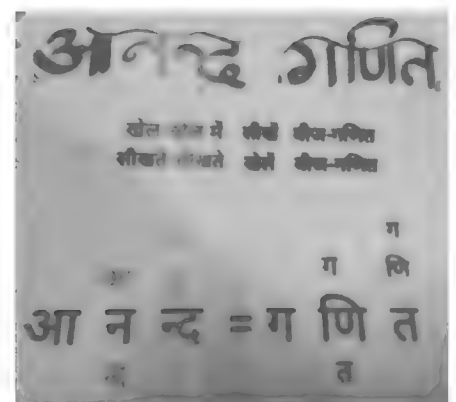 आनन्द गणित
खेल खेल में सीखें बीज-गणित
सीखते सीखते खेलें बीज-गणित
ग
ग णि
आ न न्द = ग णि त
त